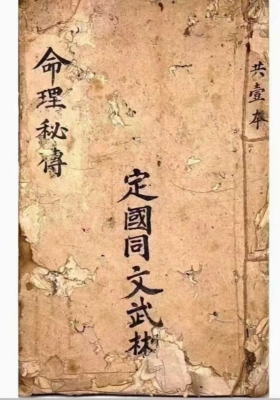 共壹本
定國同文武林
命理秘傳